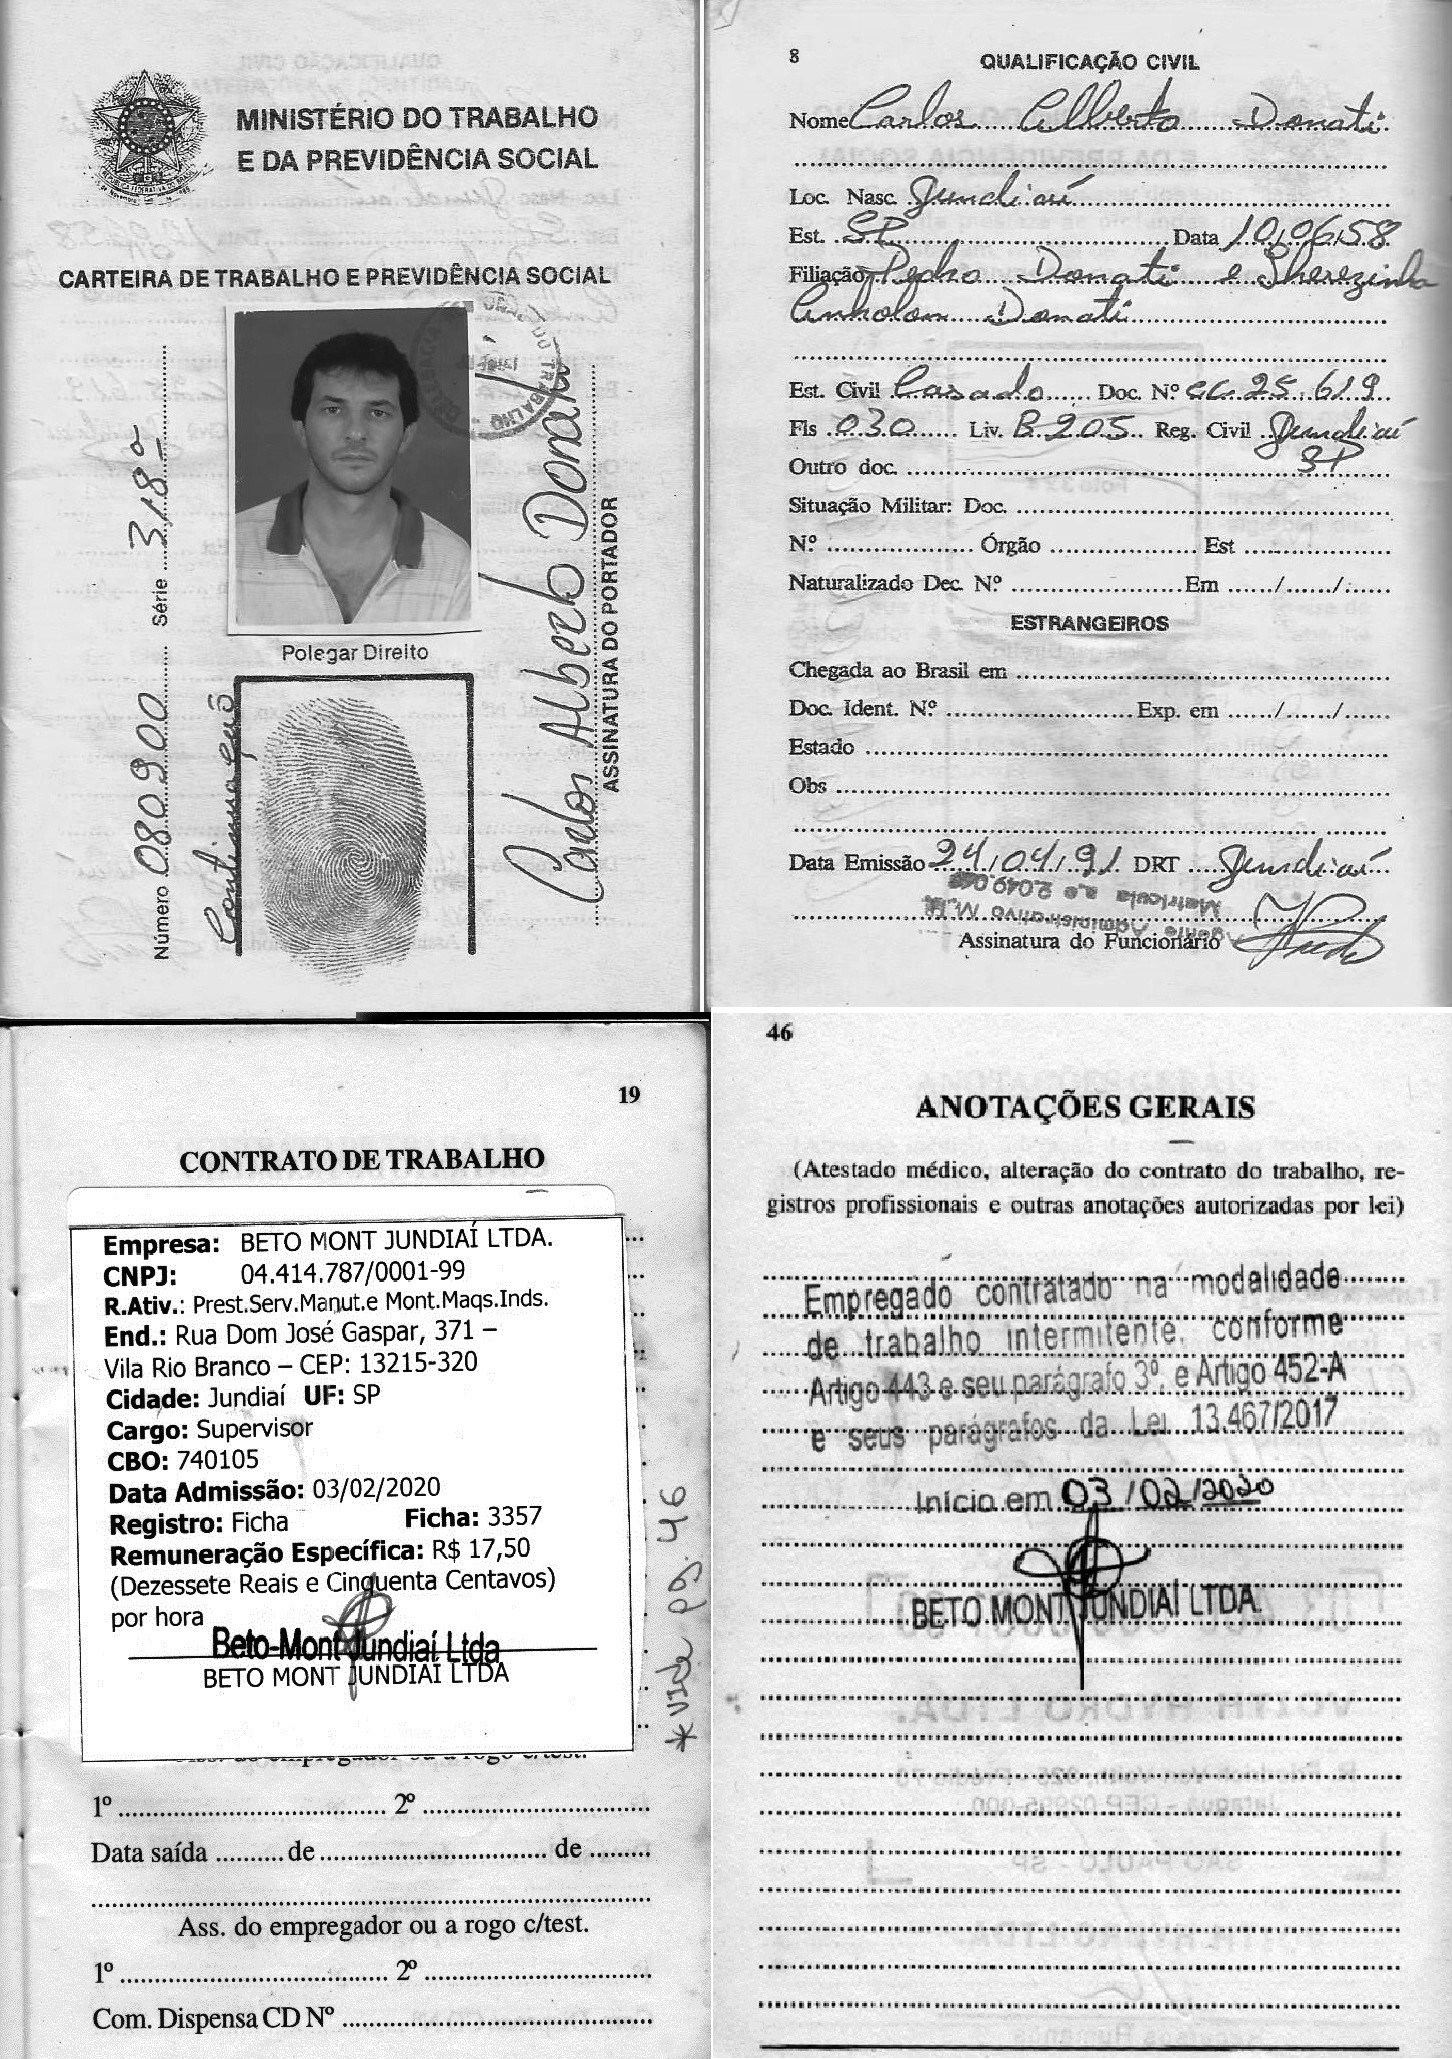 MINISTÉRIO DO TRABALHO
E DA PREVIDÊNCIA SOCIAL
CARTEIRA DE TRABALHO E PREVIDÊNCIA SOCIAL
Número 080900 Série 318ª
Continuação
Polegar Direito
Carlos Alberto Donati
ASSINATURA DO PORTADOR
8
QUALIFICAÇÃO CIVIL
Nome Carlos Alberto Donati
Loc. Nasc. Jundiaí
Est. SP Data 10/06/58
Filiação Pedro Donati e Therezinha
Anholon Donati
Est. Civil Casado Doc. Nº CC.25.619
Fls 030 Liv. B 205 Reg. Civil Jundiaí
SP
Outro doc.
Situação Militar: Doc.
Nº Órgão Est
Naturalizado Dec. Nº Em / /
ESTRANGEIROS
Chegada ao Brasil em
Doc. Ident. Nº Exp. em / /
Estado
Obs
Data Emissão 24/04/91 DRT Jundiaí
Agente Administrativo
Matrícula 2.049.
Assinatura do Funcionário
19
CONTRATO DE TRABALHO
Empresa: BETO MONT JUNDIAÍ LTDA.
CNPJ: 04.414.787/0001-99
R.Ativ.: Prest.Serv.Manut.e Mont.Maqs.Inds.
End.: Rua Dom José Gaspar, 371 –
Vila Rio Branco – CEP: 13215-320
Cidade: Jundiaí UF: SP
Cargo: Supervisor
CBO: 740105
Data Admissão: 03/02/2020
Registro: Ficha Ficha: 3357
Remuneração Específica: R$ 17,50
(Dezessete Reais e Cinquenta Centavos)
por hora
Beto-Mont Jundiaí Ltda
BETO MONT JUNDIAÍ LTDA
* vide pg. 46
Ass. do empregador ou a rogo c/test.
1º 2º
Data saída de de
Ass. do empregador ou a rogo c/test.
1º 2º
Com. Dispensa CD Nº
46
ANOTAÇÕES GERAIS
(Atestado médico, alteração do contrato do trabalho, re-
gistros profissionais e outras anotações autorizadas por lei)
Empregado contratado na modalidade
de trabalho intermitente, conforme
Artigo 443 e seu parágrafo 3º, e Artigo 452-A
e seus parágrafos da Lei 13.467/2017
Início em 03/02/2020
BETO MONT JUNDIAÍ LTDA.